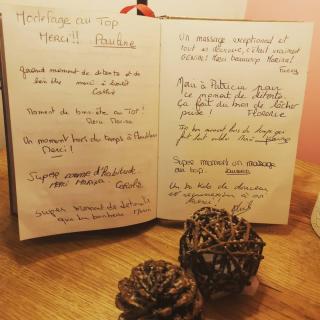 Modelage au Top
Merci!! Pauline
Grand moment de détente et de
bien être merci à
Moment de bien-être au Top!
Merci Marina
Un moment hors du temps
Merci!
Super comme d'habitude
merci Marina
Super moment de détente
que du bonheur
Un massage exceptionnel et
tout en douceur, c'était vraiment
GENIAL! Merci beaucoup Marina!
Merci à Patricia pour
ce moment de détente
Ça fait du bien de lâcher
prise! Florence
Top bon moment hors du temps qui
fait tout oublier Merci
Super moment un massage
au top.
Un bo kdo de douceur
et
Merci!